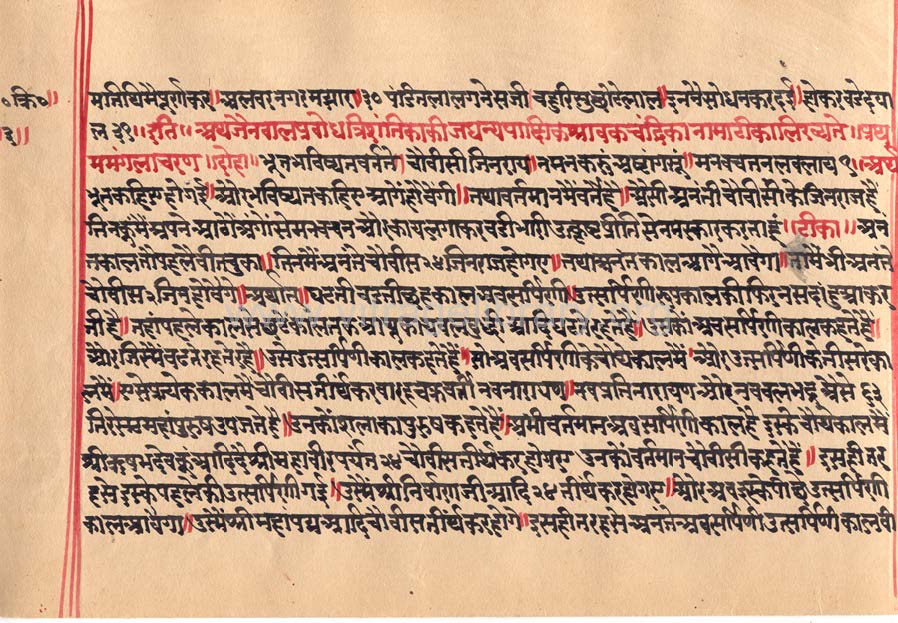 ०कि०॥ मनिथिमैपूर्णकर॥अलवरनगरमझार॥३० पंडितलालगनेसजी चहुरिसुछोटेलाल॥इनवैसोधनकरदई॥होकरबडेदया
३॥ ल ३१॥इति॥अथजैनबालप्रबोधत्रिशंतिकाकी जघन्यपाक्षिकश्रावकचंद्रिका नामाटीकालिख्यते॥प्रथ
ममंगलाचरण॥दोहा॥भूतभविष्यतवर्तते॥चौवीसीजिनराय॥नमनकरुंअष्टांगसूं॥मनवचनतनलवलाय१॥अर्थ
भूतकहिएहोगई॥औरभविष्यतकहिएआगेंहोवेंगी॥तथावर्तमानमैंवर्तेहै॥अैसीअनंतीचौवीसीकेजिनराजहैं
तिनकुंमैंअपनेआठोंअंगोंसेमनवचनऔरकायलगाकरबडीभारी उत्कृष्टप्रीतिसेनमस्कारकरताहूं॥टीका॥अनं
तकालतौपहलेवीतचुका॥तिनमैंअनंतेचौवीस२४जिनराजहोगए॥तथाअनंतकालआगेआवेगा॥तामैंभीअनंते
चौवीस२जिनहोवेंगे॥अर्थात॥घटतीबढतीछहकालअवसर्प्पिणी॥उत्सर्प्पिणीरूपकालकीफिरनसदांहुआकर
तीहै॥तहांपहलेकालसेछठेकालतकआयुकायबलघटते हैं औरघटतेरहतेहै॥उसकोअवसर्प्पिणीकालकहतेहै॥
औरजिस्मैंबढतेरहतेरहै॥उसेउत्सर्प्पिणीकालकहतेहैं॥सोअवसर्प्पिणीकेचोथेकालमैं॥औरउत्सर्प्पिणीकेतीसरेका
लमैं॥एसेप्रत्येककालमैंचौवीसतीर्थंकरबारहचक्रवर्ती नवनारायण॥नवप्रतिनारायणऔरनवबलभद्र अैसे ६३
तिरेसठमहांपुरुषउपजतेहै॥उनकोंशलाकापुरुषकहतेहै॥अभीवर्तमानअवसर्प्पिणीकालहैइस्केचौथेकालमैं
श्रीऋषभदेवकूंआदिदैश्रीमहावीरपर्यंत२४चौवीसतीर्थंकरहोगए उनकोंवर्तमानचौवीसीकहतेहैं॥इसहीतर
हसेइस्केपहलेकीउत्सर्प्पिणीगई॥उस्मैंश्रीनिर्वाणजीआदि२४तीर्थंकरहोगए॥औरअबइस्केपीछेउत्सर्प्पिणी
कालआवेगा॥उस्मैंश्रीमहांपद्मआदिचौवीसतीर्थंकरहोंगे॥इसहीतरहसेअनंतेअवसर्प्पिणीउत्सर्प्पिणीकालवी